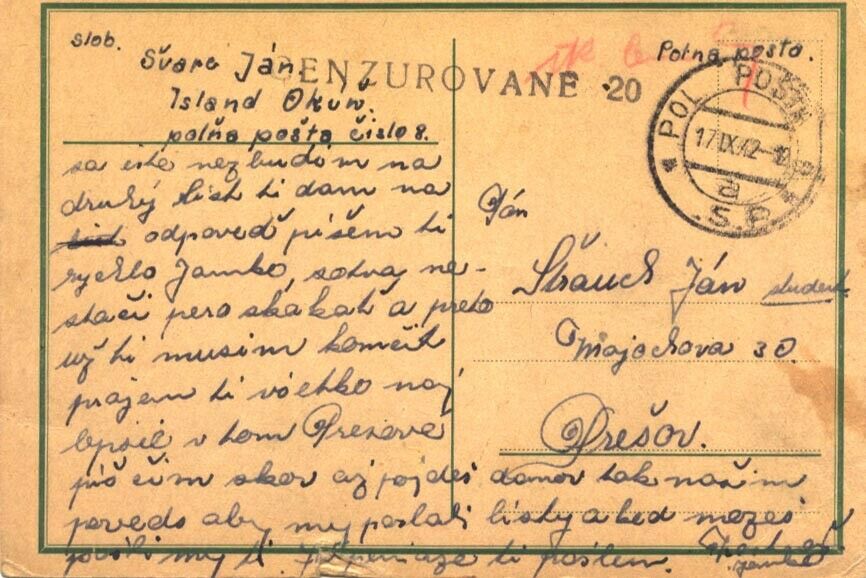 slob.
Švarc Ján
Island Okuň.
polňa pošta číslo 8.
CENZUROVANE 20
Polna pošta.
POL. POŠTA
17.IX.42-12
a
S.P.
sa ešte nezbudím na
druhý list ti dam na
odpoveď píšem ti
rychlo Jamko, sotva ne-
stačí pero skákať a preto
už ti musím končit
prajem ti všetko naj
lepšie v tom Prešove
píš čím skor až pojdeš domov tak našim
povedz aby my poslali listy a ked mozeš
pošli my ti peniaze ti pošlem.
Pán
Štrauch Ján student
Majochova 30.
Prešov.